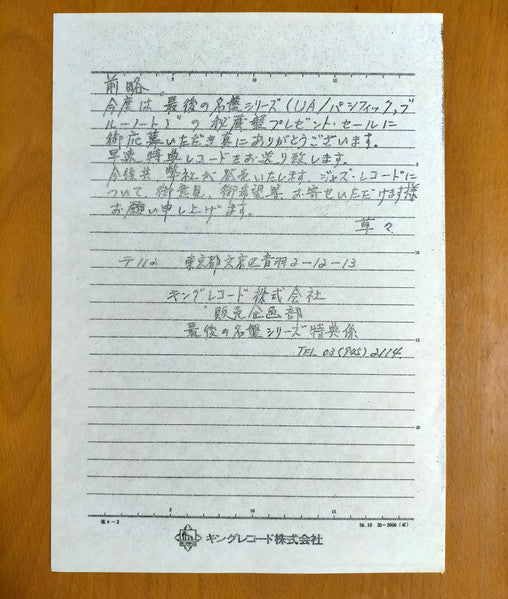 前略
今度は 最後の名盤シリーズ (UA/パシフィック,ブ
ルーノート)〟の秘蔵盤プレゼント・セールに
御応募いただき真にありがとうございます。
早速 特典レコードをお送り致します。
今後共 弊社が発売いたします ジャズ・レコードに
ついて 御意見、御希望等 お寄せいただけます様
お願い申し上げます。
草々
〒112 東京都文京区音羽2-12-13
キングレコード株式会社
販売企画部
最後の名盤シリーズ特典係
TEL 03 (945) 2114
5 10 15
5
10
15
20
5 10 15
キングレコード株式会社